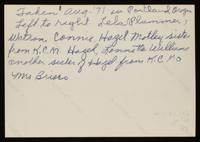 Taken Aug. 71 in Portland, Oregon
Left to right Lela Plummer,
Watson, Connie, Hazel Motley sister
from K.C.M. Hazel, Lonnetta William
another sister of Hazel from K.C.MO
Mrs Briers